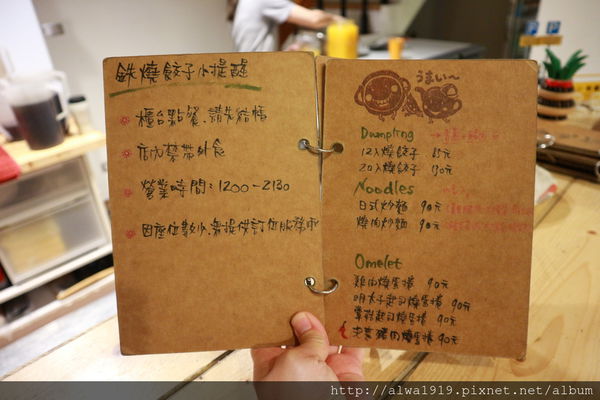 鉄燒餃子小提醒
櫃台點餐、請先結帳
店內禁帶外食
營業時間：1200-2130
因座位較少，無提供訂位服務
うまい～
Dumpling
12入燒餃子 85元
20入燒餃子 130元
Noodles
日式炒麵 90元
燒肉炒麵 90元
Omelet
雞肉燒蛋捲 90元
明太子起司燒蛋捲 90元
起司燒蛋捲 90元
豬肉燒蛋捲 90元
http://alwa1919.pixnet.net/album